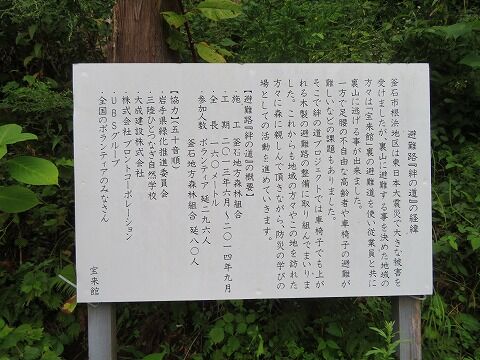 避難路『絆の道』の経緯
釜石市根浜地区は東日本大震災で大きな被害を
受けましたが、裏山に避難する事を決めた地域の
方々は「宝来館」裏の避難道を使い従業員と共に
裏山に逃げる事が出来ました。
一方で足腰の不自由な高齢者や車椅子の避難が
難しいなどの課題もありました。
そこで絆の道プロジェクトでは車椅子でも上が
れる木製の避難路の整備に取り組んでまいりま
した。これからも地域の方々やこの地を訪れた
方々に森に親しんで頂きながら、防災の学びの
場としての活動を進めていきます。
【避難路『絆の道』の概要】
・施工 釜石地方森林組合
・工期 二〇一三年六月～二〇一四年九月
・全長 一六〇メートル
参加人数 ボランティア 延二九六人
釜石地方森林組合 延八〇人
【協力】(五十音順)
・岩手県緑化推進委員会
・三陸ひとつなぎ自然学校
・大成建設株式会社
・株式会社プロントコーポレーション
・UBSグループ
・全国のボランティアのみなさん
宝来館